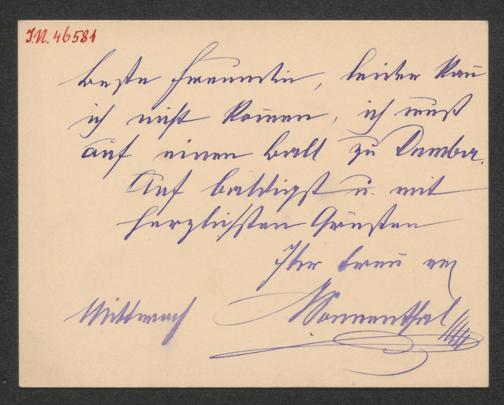 I.N. 46581
Beste Freundin, leider kan̄
ich nicht kom̄en, ich muß
auf einen Ball zu Dumba.
Auf baldigst u. mit
herzlichsten Grüssen
Ihr treu erg
Sonnenthal
Mittwoch